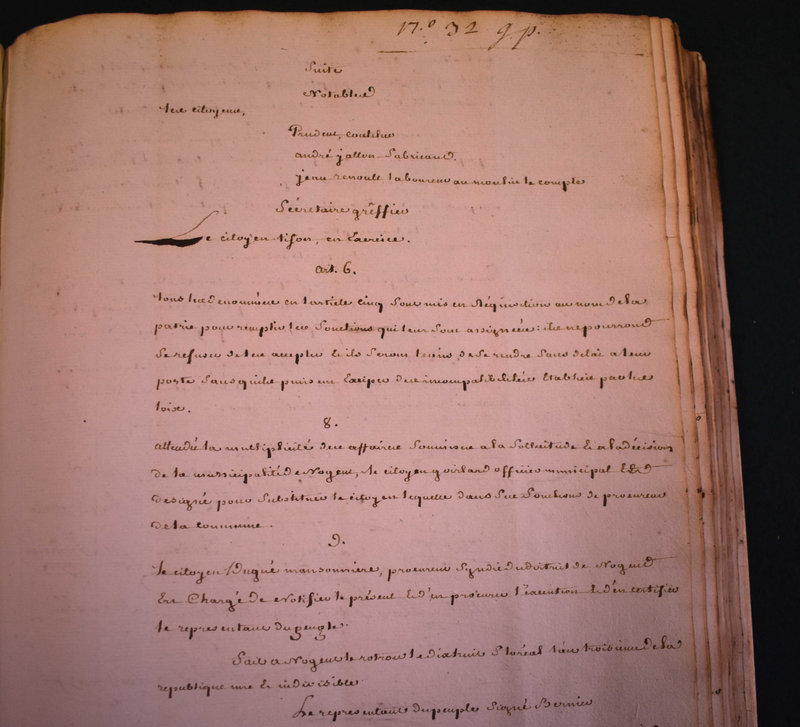 n.o 32 g.p.
Suite
Notables
Les citoyens,
Prudent, coutelier
andré jallon fabricant.
jean renoult laboureur au moulin le comple
Sécretaire gréffier
Le citoyen tison, en Exercice.
art. 6.
tous les denommés en l'article cinq Sont mis en Réquisition au nom de la
patrie pour remplir les fonctions qui leur Sont assignées: ils ne pourront
Se refuser de les accepter & ils Seront tenus de Se rendre Sans délai a leur
poste Sans qu'ils puissent Exciper des incompatibilités Etablies par les
loix.
8.
attendu la multiplicité des affaires Soumises a la Sollicitude & a la décision
de la municipalité de Nogent, le citoyen goislard officier municipal Est
designé pour Substituer le citoyen lequelle dans Ses fonctions de procureur
de la commune.
9.
le citoyen Dugué mansonniere, procureur Syndic du district de Nogent
Est Chargé de Notifier le présent & d'en procurer l'éxecution & d'en certifier
le representant du peuple.
fait a Nogent le rotrou le dixhuit floréal l'an troisieme de la
republique une & indivisible
Le representant du peuple Signé Bernier